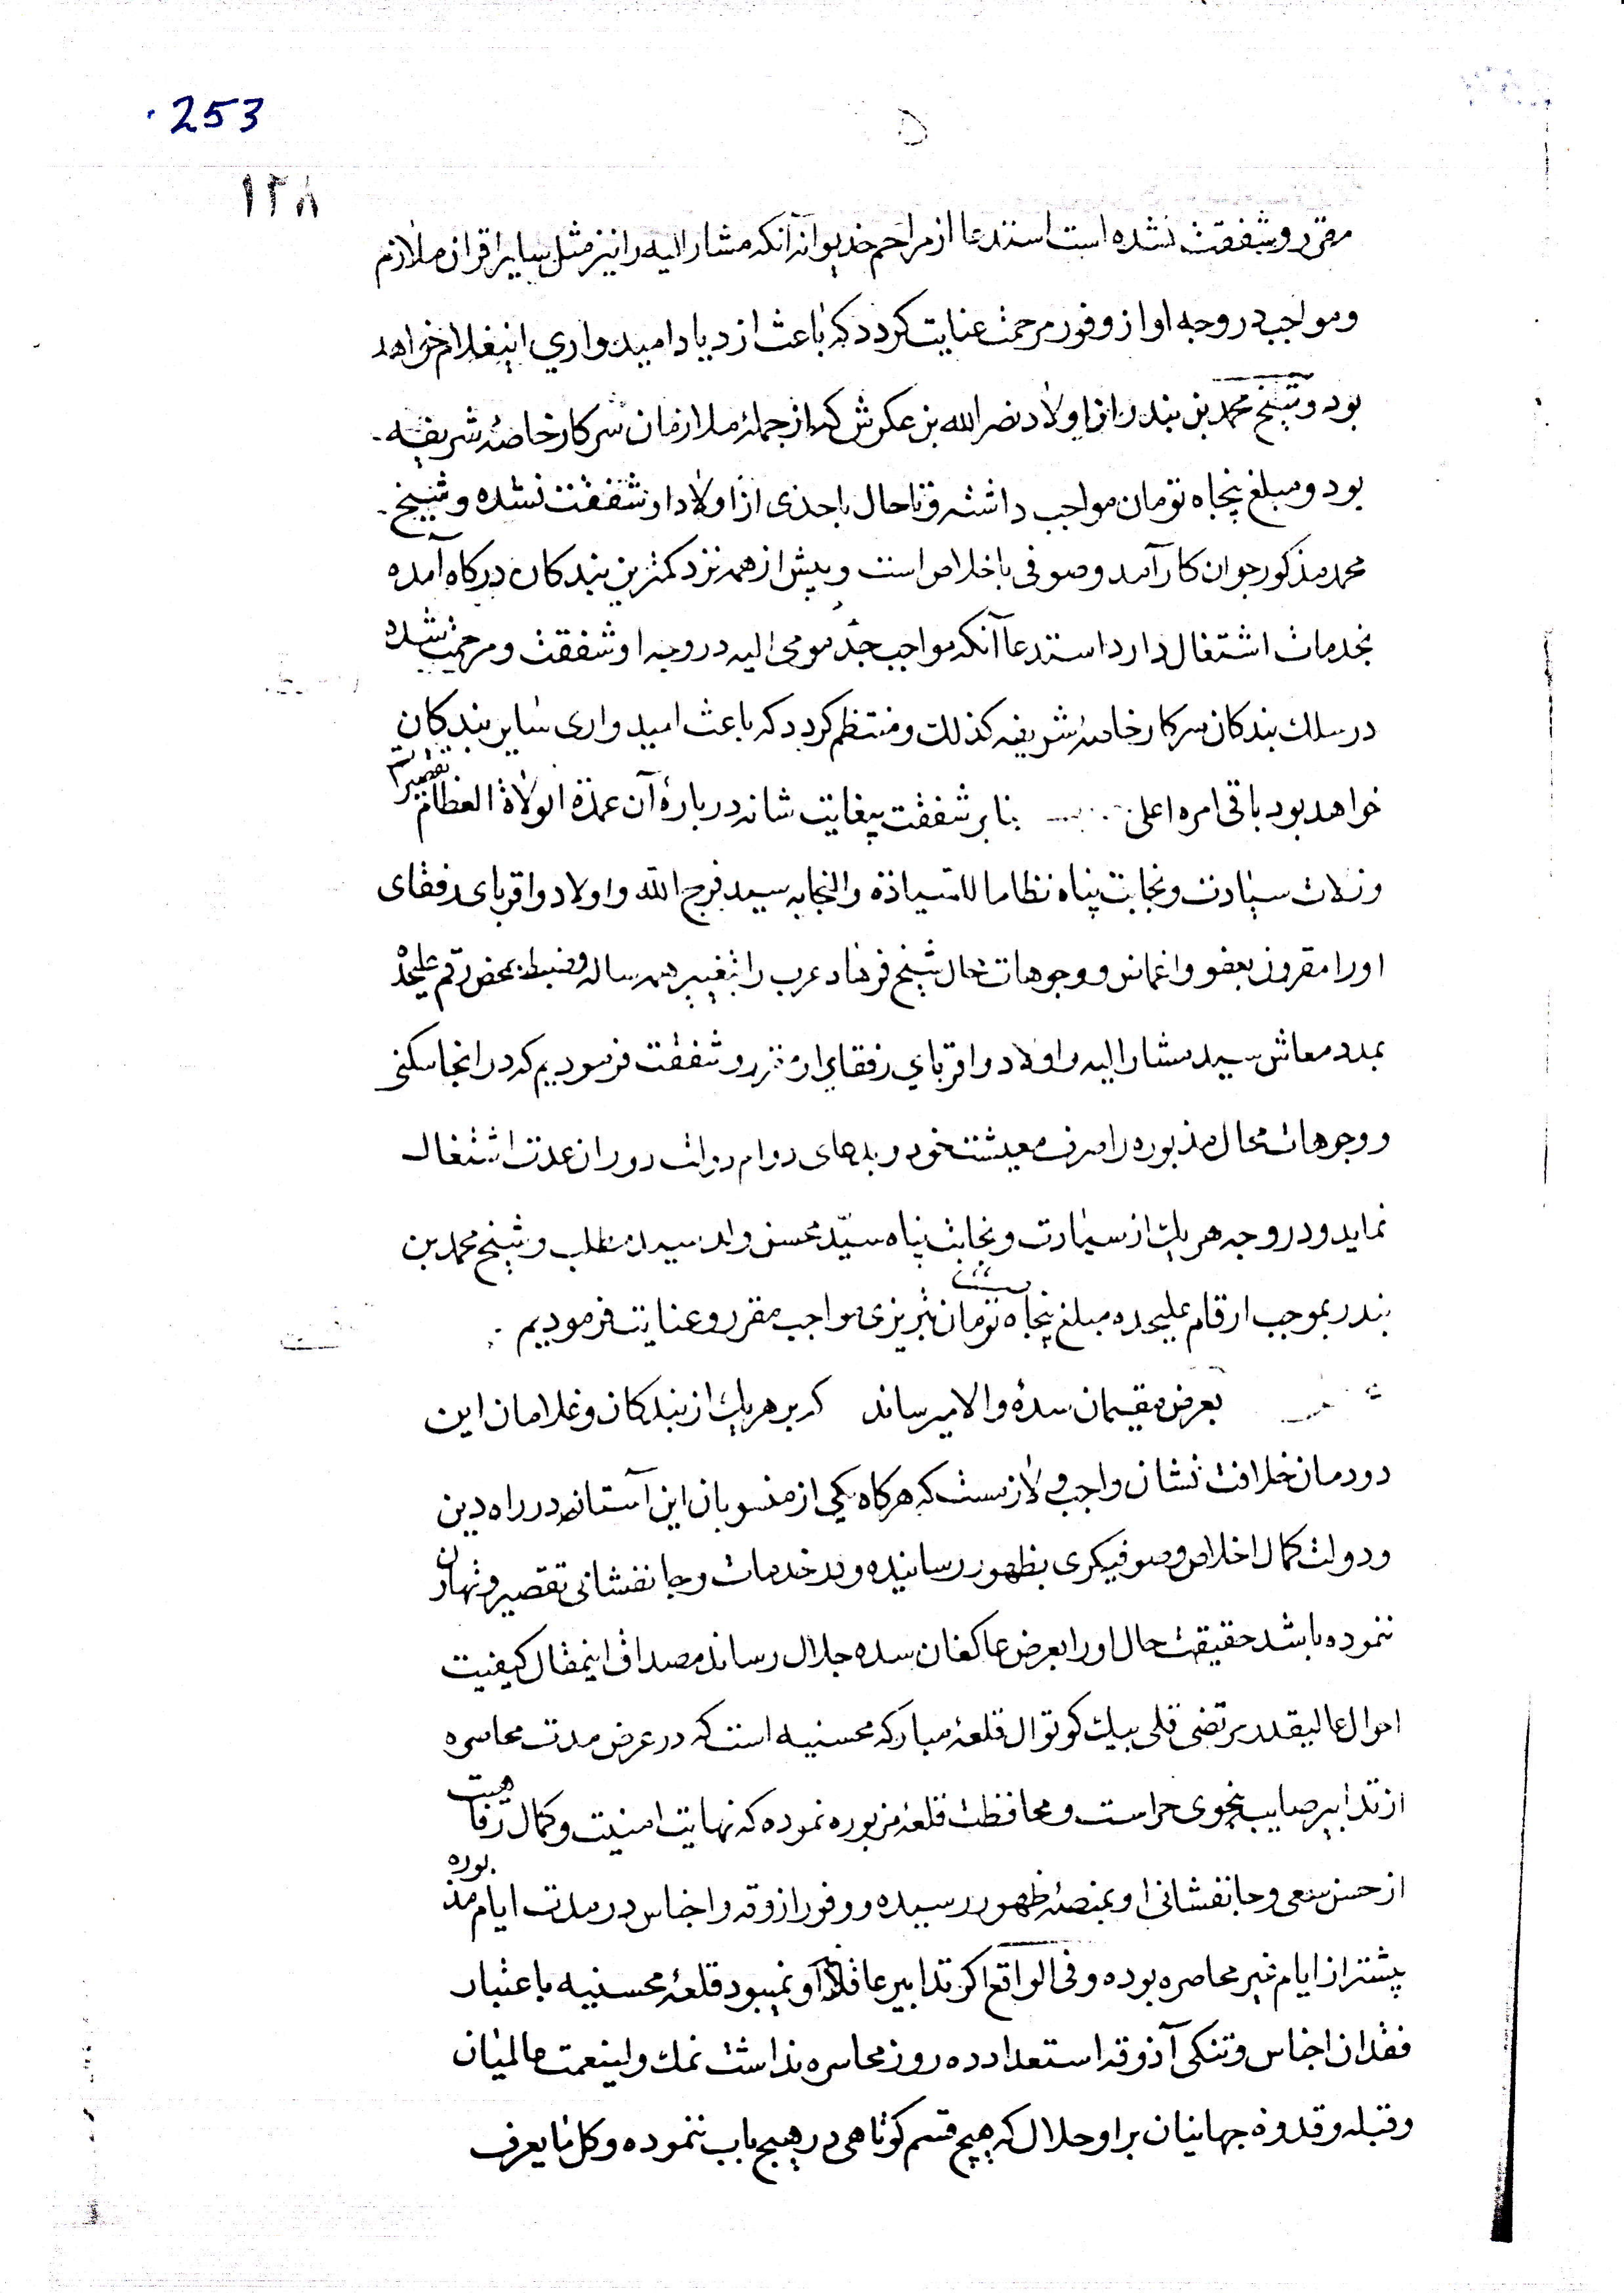 253
۱۲۸
مقرر و شفقت نشده است استدعا از مراحم خدیوانه آنکه مشار الیه را نیز مثل سایر اقران ملازم
و مواجب در وجه او از وفور مرحمت عنایت کردد که باعث ازدیاد امیدواری اینغلام خواهد
بود و شیخ محمد بن بندر از اولاد نصر الله بن عکرش که از جملهٔ ملازمان سرکار خاصهٔ شریفه
بود و مبلغ پنجاه تومان مواجب داشته و تا حال باحدی از اولاد او شفقت نشده و شیخ
محمد مذکور جوان کارآمد و صوفی با اخلاص است و پیش از همه نزد کمترین بندکان درکاه آمده
بخدمات اشتغال دارد استدعا آنکه مواجب جد مومی الیه در وجه او شفقت و مرحمت شده
در سلك بندکان سرکار خاصهٔ شریفه کذلك و منتظم کردد که باعث امیدواری سایر بندکان
خواهد بود باقی امره اعلی بنابر شفقت بیغایت شاهانه دربارهٔ آن عمدة الولاة العظام تقصیرات
و زلات سیادت و نجابت پناه نظاما للسیادة والنجابه سید فرج الله و اولاد و اقربای رفقای
او را مقرون بعفو و اغماض و وجوهات محال شیخ فرهاد عرب را بتغییر همه ساله و ضبط بمحض رقم علیحده
بمدد معاش سید مشار الیه و اولاد و اقربای رفقای او مقرر و شفقت فرمودیم که در انجا سکنی
و وجوهات محال مذبوره را صرف معیشت خود و بدعای دوام دولت دوران عدت اشتغال
نماید و در وجه هریك از سیادت و نجابت پناه سید محسن ولد سید مطلب و شیخ محمد بن
بندر بموجب ارقام علیحده مبلغ پنجاه تومان تبریزی مواجب مقرر و عنایت فرمودیم
بعرض مقیمان سدهٔ والا میرساند که بر هریك از بندکان و غلامان این
دودمان خلافت نشان واجب و لازمست که هرکاه یکی از منسوبان این آستانه در راه دین
و دولت کمال اخلاص و صوفیکری بظهور رسانیده و در خدمات و جانفشانی تقصیر و تهاون
ننموده باشد حقیقت حال او را بعرض عاکفان سده جلال رساند مصداق اینمقال کیفیت
احوال عالیقدر مرتضی قلی بیك کوتوال قلعهٔ مبارکه محسنیه است که در عرض مدت محاصره
از تدابیر صایب بنحوی حراست و محافظت قلعهٔ مزبوره نموده که نهایت امنیت و کمال رفاهیت
از حسن سعی و جانفشانی او بمنصهٔ ظهور رسیده و وفور ازوقه و اجناس در مدت ایام مذبوره
پیشتر از ایام غیر محاصره بوده و فی الواقع اکر تدابیر عاقلانه او نمیبود قلعهٔ محسنیه باعتبار
فقدان اجناس و تنکی آذوقه استعداد ده روز محاصره نداشت نمك ولینعمت عالمیان
و قبله و قدوه جهانیان بر او حلال که هیچ قسم کوتاهی در هیچ باب ننموده و کل ما یعرف